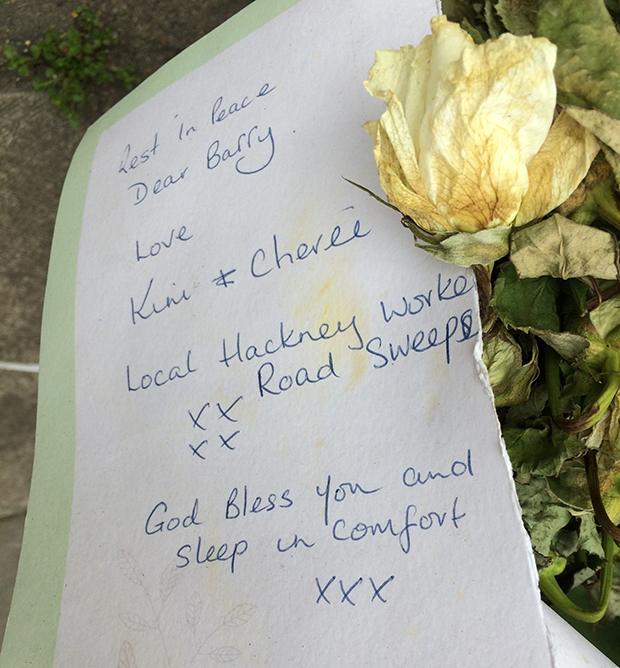 Rest in Peace
Dear Barry.
Love
Kim & Chereé
Local Hackney Worke
Road Sweeps
XX
XX
God Bless you and
sleep in comfort
XXX